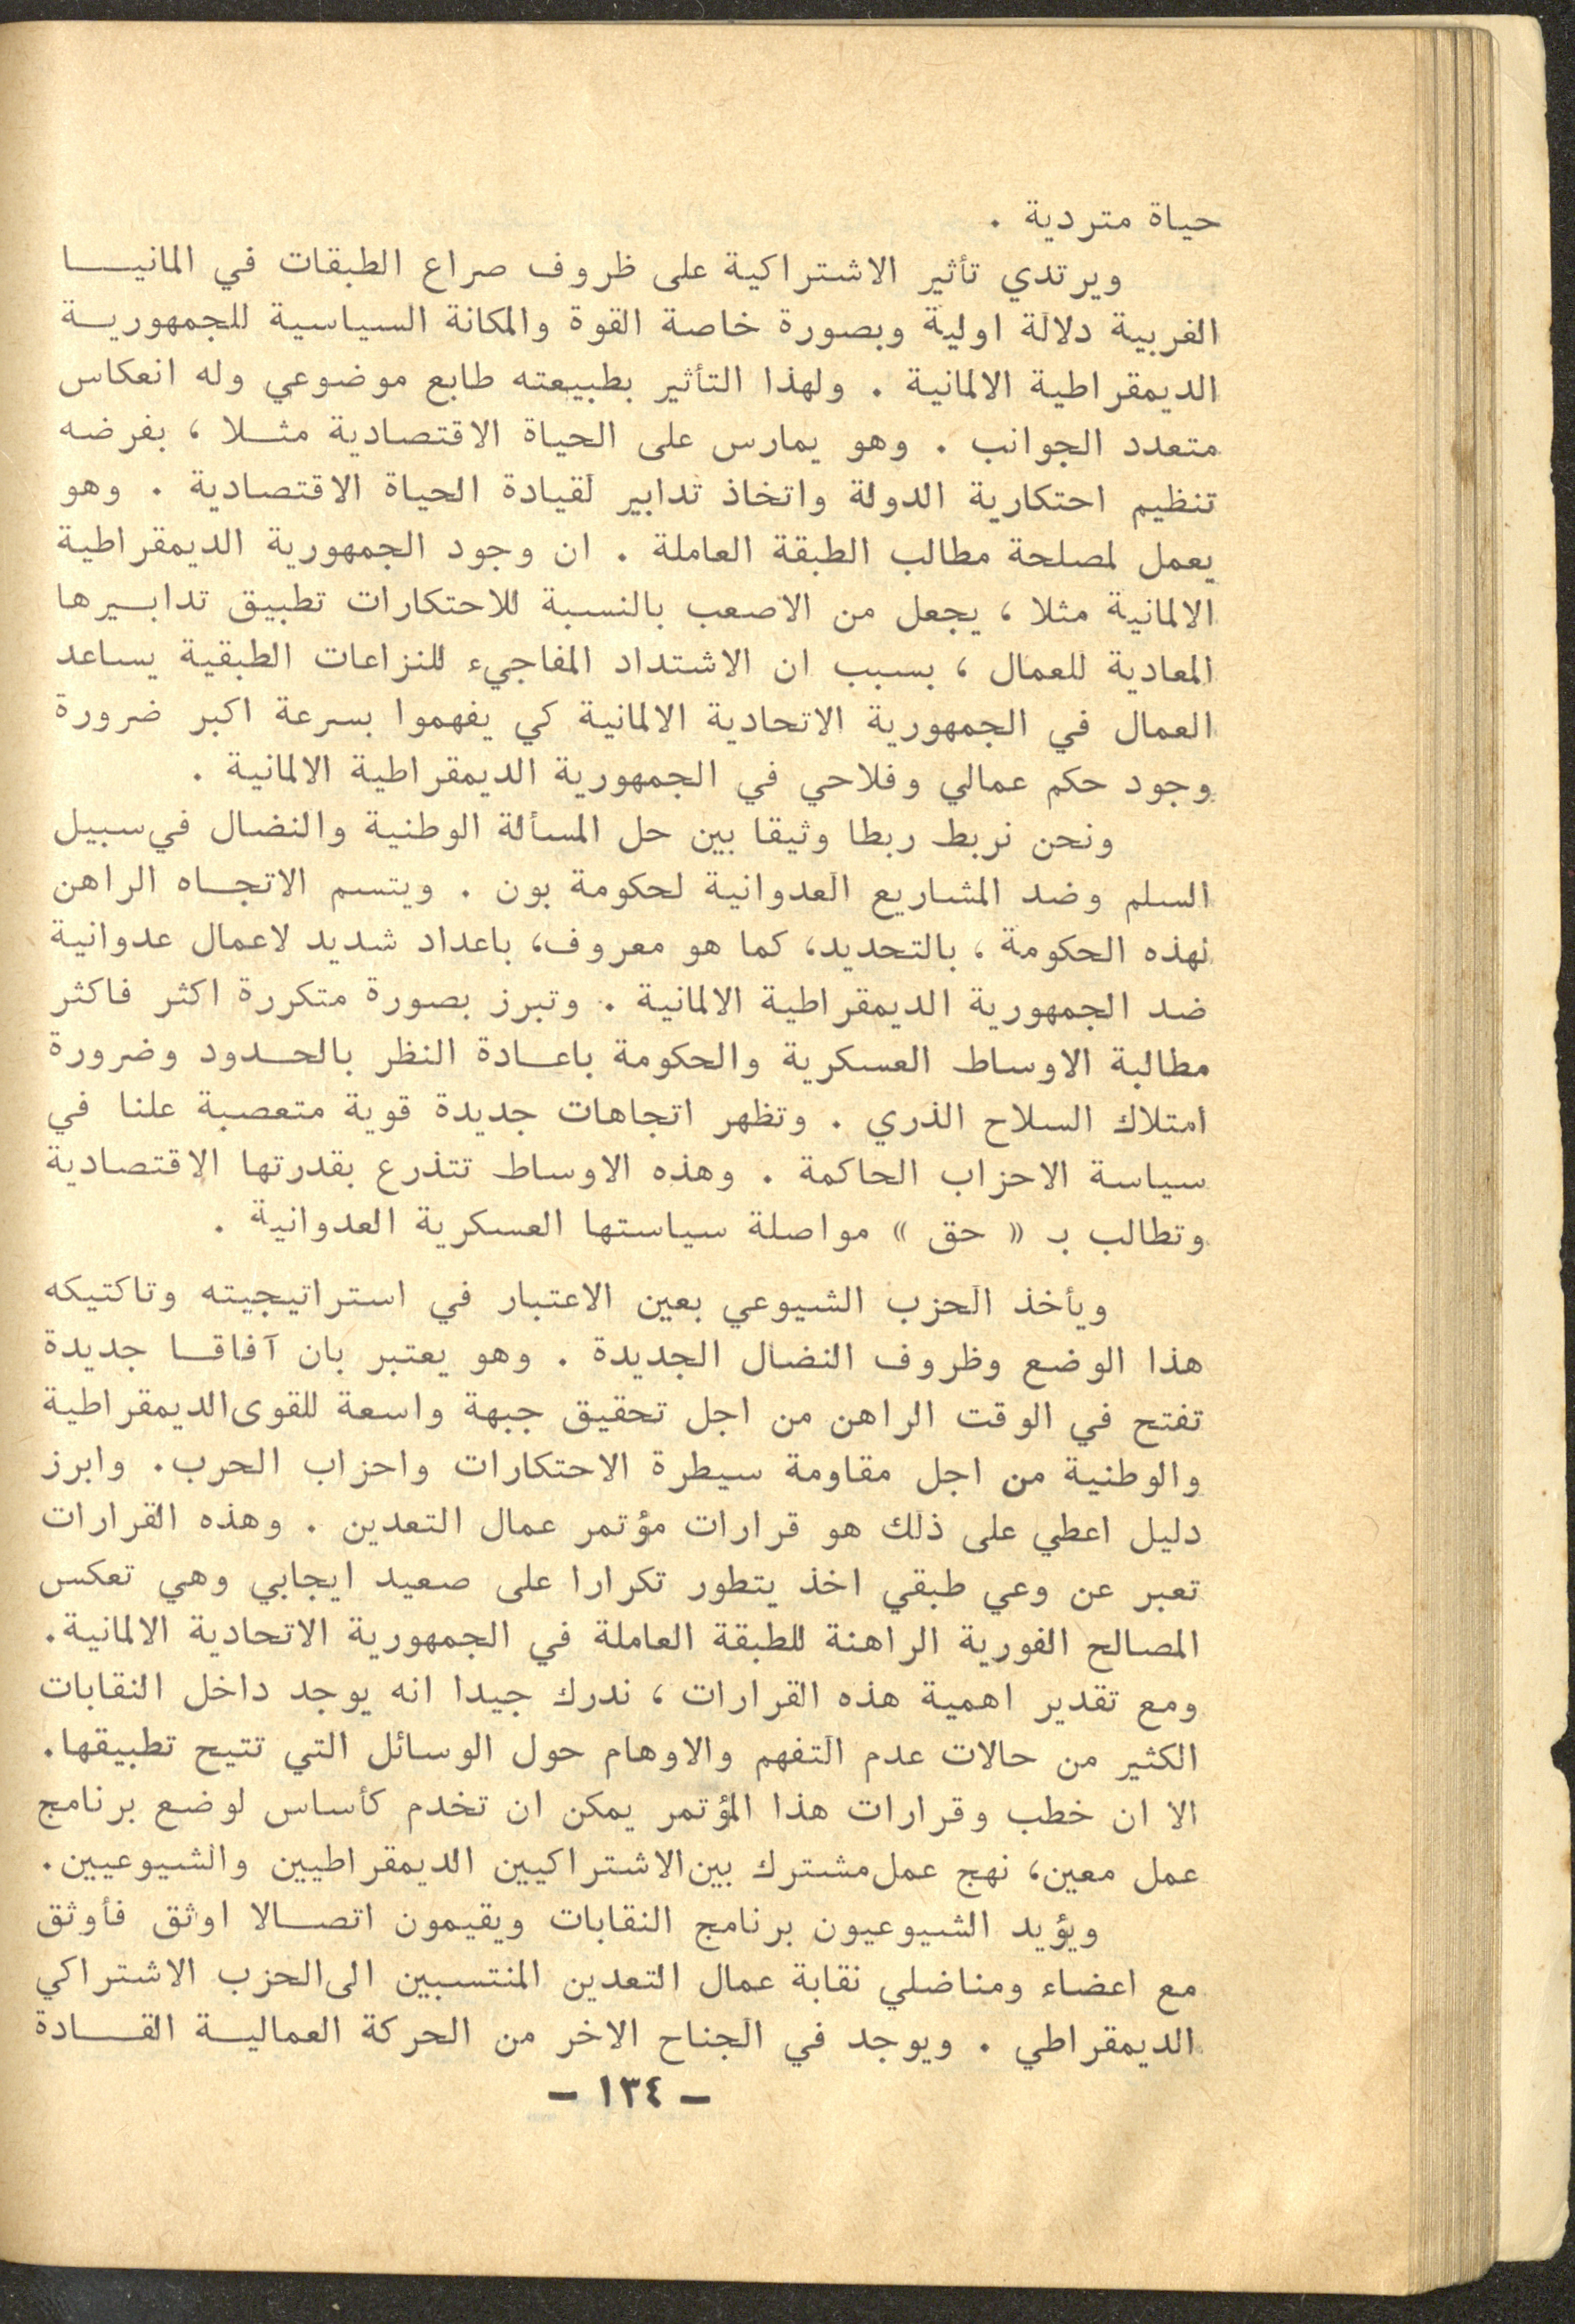 حياة متردية .
ويرتدي تأثير الاشتراكية على ظروف صراع الطبقات في المانيا
الغربية دلالة اولية وبصورة خاصة القوة والمكانة السياسية للجمهورية
الديمقراطية الالمانية . ولهذا التأثير بطبيعته طابع موضوعي وله انعكاس
متعدد الجوانب . وهو يمارس على الحياة الاقتصادية مثلا ، بفرضه
تنظيم احتكارية الدولة واتخاذ تدابير لقيادة الحياة الاقتصادية . وهو
يعمل لمصلحة مطالب الطبقة العاملة . ان وجود الجمهورية الديمقراطية
الالمانية مثلا ، يجعل من الاصعب بالنسبة للاحتكارات تطبيق تدابيرها
المعادية للعمال ، بسبب ان الاشتداد المفاجيء للنزاعات الطبقية يساعد
العمال في الجمهورية الاتحادية الالمانية كي يفهموا بسرعة اكبر ضرورة
وجود حكم عمالي وفلاحي في الجمهورية الديمقراطية الالمانية .
ونحن نربط ربطا وثيقا بين حل المسألة الوطنية والنضال في سبيل
السلم وضد المشاريع العدوانية لحكومة بون . ويتسم الاتجاه الراهن
لهذه الحكومة ، بالتحديد، كما هو معروف، باعداد شديد لاعمال عدوانية
ضد الجمهورية الديمقراطية الالمانية . وتبرز بصورة متكررة اكثر فاكثر
مطالبة الاوساط العسكرية والحكومة باعادة النظر بالحدود وضرورة
امتلاك السلاح الذري . وتظهر اتجاهات جديدة قوية متعصبة علنا في
سياسة الاحزاب الحاكمة . وهذه الاوساط تتذرع بقدرتها الاقتصادية
وتطالب بـ « حق » مواصلة سياستها العسكرية العدوانية .
ويأخذ الحزب الشيوعي بعين الاعتبار في استراتيجيته وتاكتيكه
هذا الوضع وظروف النضال الجديدة . وهو يعتبر بان آفاقا جديدة
تفتح في الوقت الراهن من اجل تحقيق جبهة واسعة للقوى الديمقراطية
والوطنية من اجل مقاومة سيطرة الاحتكارات واحزاب الحرب. وابرز
دليل اعطي على ذلك هو قرارات مؤتمر عمال التعدين . وهذه القرارات
تعبر عن وعي طبقي اخذ يتطور تكرارا على صعيد ايجابي وهي تعكس
المصالح الفورية الراهنة للطبقة العاملة في الجمهورية الاتحادية الالمانية.
ومع تقدير اهمية هذه القرارات ، ندرك جيدا انه يوجد داخل النقابات
الكثير من حالات عدم التفهم والاوهام حول الوسائل التي تتيح تطبيقها.
الا ان خطب وقرارات هذا المؤتمر يمكن ان تخدم كأساس لوضع برنامج
عمل معين، نهج عمل مشترك بين الاشتراكيين الديمقراطيين والشيوعيين.
ويؤيد الشيوعيون برنامج النقابات ويقيمون اتصالا اوثق فأوثق
مع اعضاء ومناضلي نقابة عمال التعدين المنتسبين الى الحزب الاشتراكي
الديمقراطي . ويوجد في الجناح الاخر من الحركة العمالية القادة
– ١٣٤ –